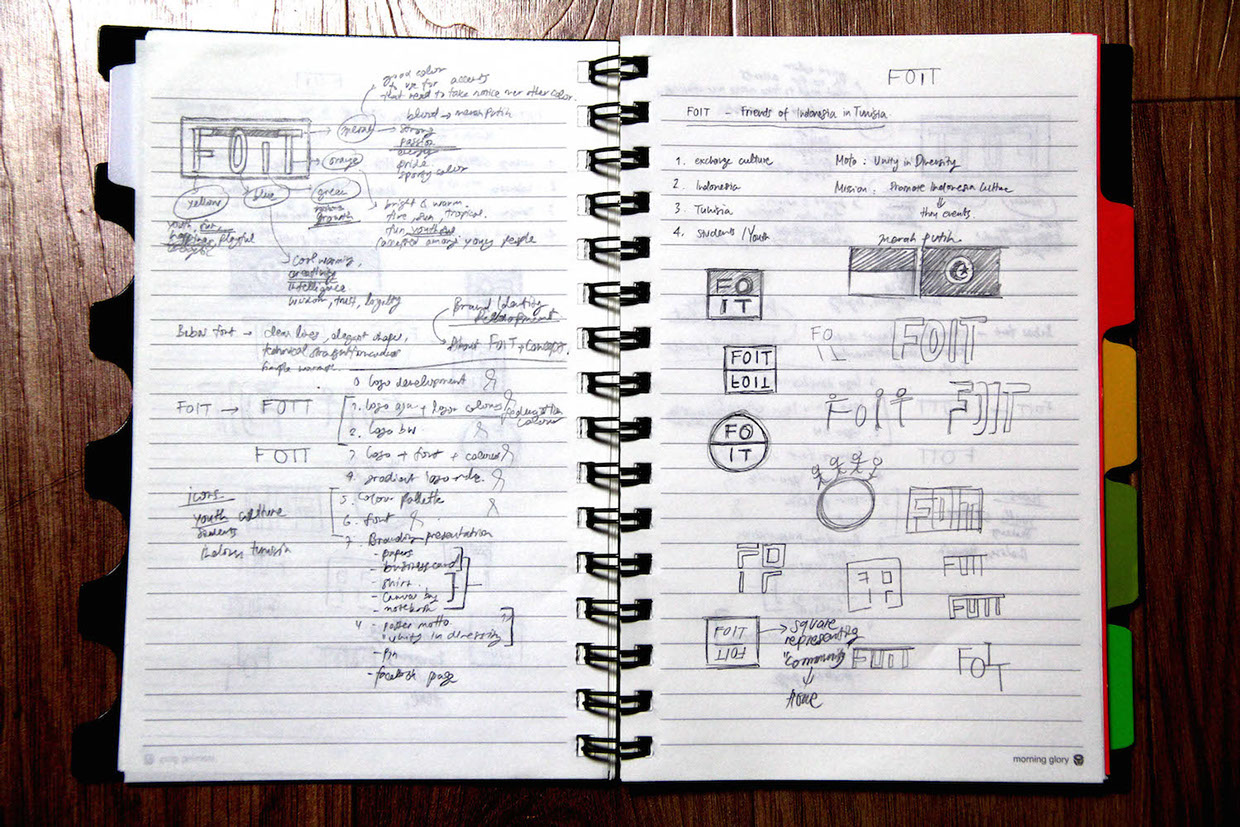 good color
to use for accents
that need to take notice over other color.
blurd → merah putih
FOIT
merah
strong
passion
energy
pride
sporty color
orange
yellow
blue
green
growth
bright & warm.
fire, sun, tropical.
fun, youthful
(accepted among young people
youth, fun,
happiness, playful
cool warning,
intelligence
wisdom, trust, loyalty
Brand Identity
Development
About FOIT + concept.
Bebas font → clean lines, elegant shapes,
technical straightforwardness
simple
0 logo development
FOIT → FOIT
1. logo + logo colors
colour
2. logo bw
FOIT
3 logo + font + colored
4. gradient
5. colour pallette
6. font
7. Branding presentation
icons.
youth culture
students
tunisia
- papers
- business card
- shirt
- canvas bag
- notebook
- poster motto
"unity in diversity"
- pin
- facebook page
FOIT
FOIT - Friends of Indonesia in Tunisia
1. exchange culture
Moto : Unity in Diversity
2. Indonesia
Mission : Promote Indonesia Culture
3. Tunisia
thru events
4. students / Youth
merah putih
FO
IT
FO
IT
FOIT
FOIT
FOIT
FO
IT
FOIT
FOIT
FO
IT
FOIT
FOIT
FOIT
FOIT
→ square
representing
"community"
home
FOIT
FOIT
morning glory